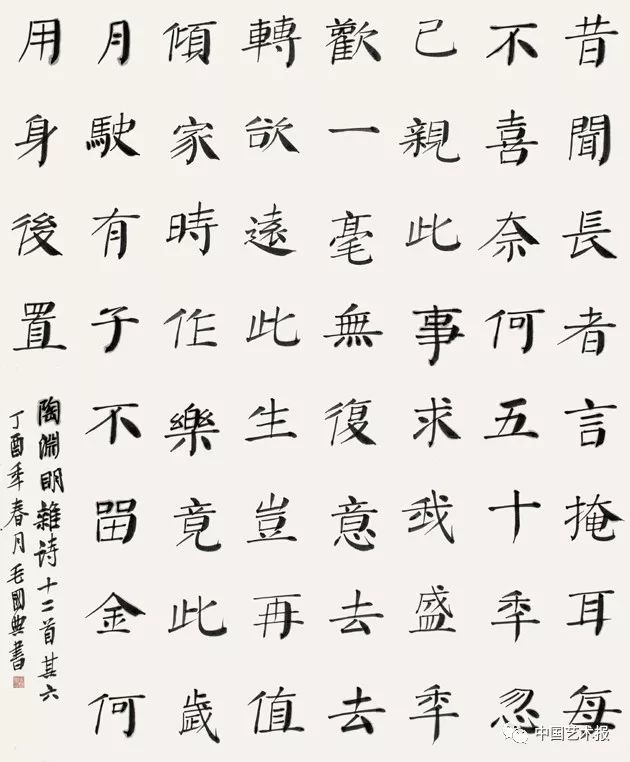 昔聞長者言掩耳每
不喜奈何五十秊忽
已親此事求我盛秊
歡一毫無復意去去
轉欲遠此生豈再值
傾家時作樂竟此歲
月駛有子不留金何
用身後置
陶淵明雜诗十二首其六
丁酉秊春月毛國典書
中国艺术报